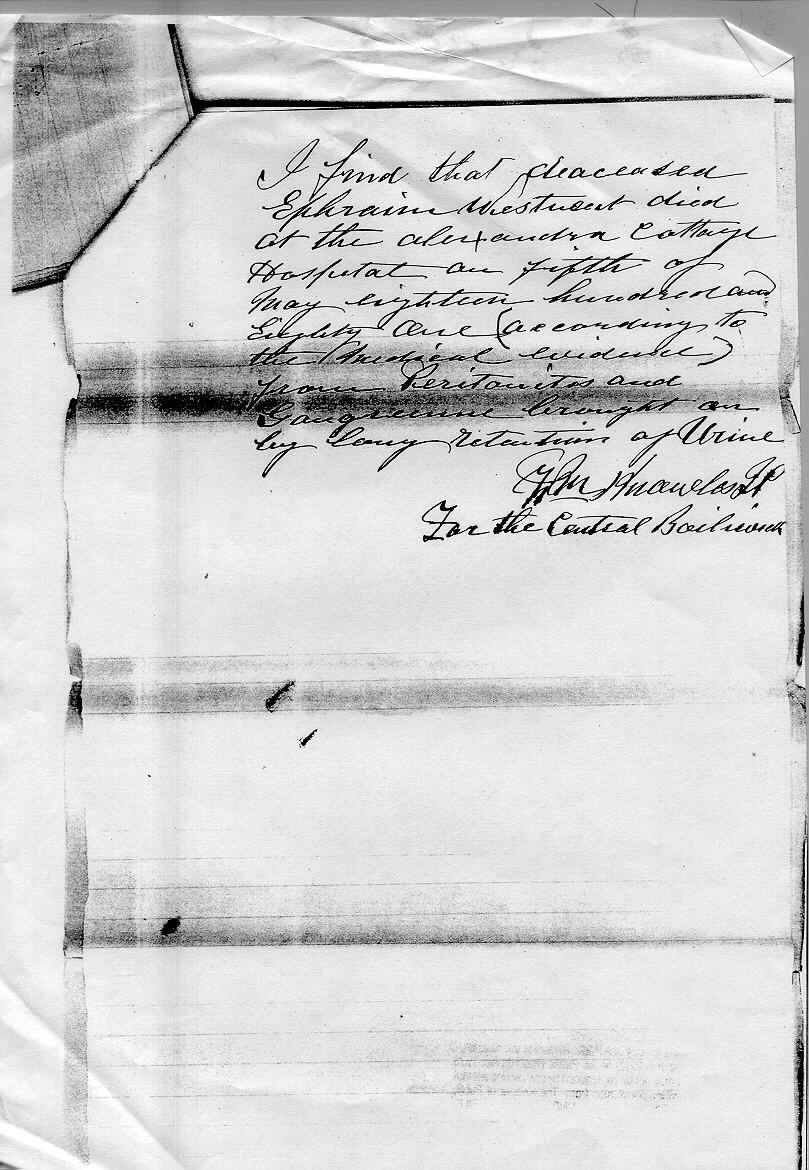 I find that deaceased
Ephraim Westwood died
at the alexandra Cottage
Hospital on fifth of
May eighteen hundred and
Eighty One (according to
the (medical evidence)
from Peritonitos and
Gangreene brought on
by long retention of Urine
Wm Knowles JP
For the Central Bailiwick